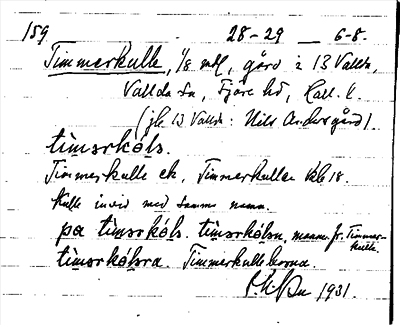 159 28-29 — 6-8.
Timmerkulle, 1/8 mtl, gård i 13 Vallda,
Vallda sn, Fjäre hd, Hall. l.
(jb 13 Vallda: Nils Andersgård).
tìmərkóls.
Timmerkulle ek, Timmerkulle kb 18.
Kulle invid med samma namn.
pa tìmərkóls. tìmərkólsn, mannen fr. Timmer-
kulle.
tìmərkólsra Timmerkulleborna.
1931.